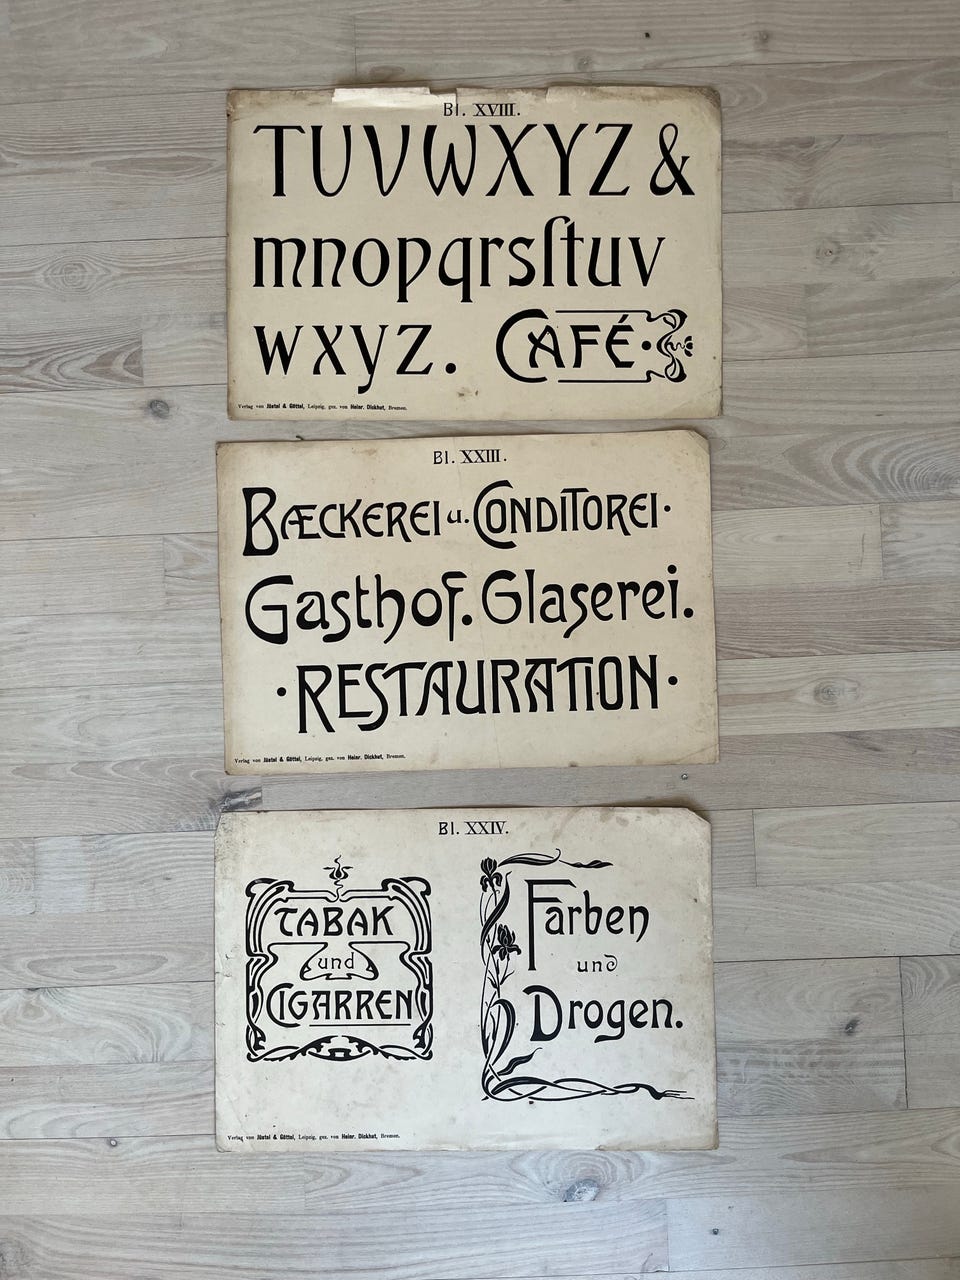 Bl. XVIII.
TUVWXYZ &
mnopqrsſtuv
wxyz. CAFÉ·
Verlag von Jüstel & Göttel, Leipzig, gez. von Heinr. Dickhut, Bremen.
Bl. XXIII.
BÆCKEREI u. CONDITOREI·
Gasthof. Glaserei.
·RESTAURATION·
Verlag von Jüstel & Göttel, Leipzig, gez. von Heinr. Dickhut, Bremen.
Bl. XXIV.
TABAK
und
CIGARREN
Farben
und
Drogen.
Verlag von Jüstel & Göttel, Leipzig, gez. von Heinr. Dickhut, Bremen.